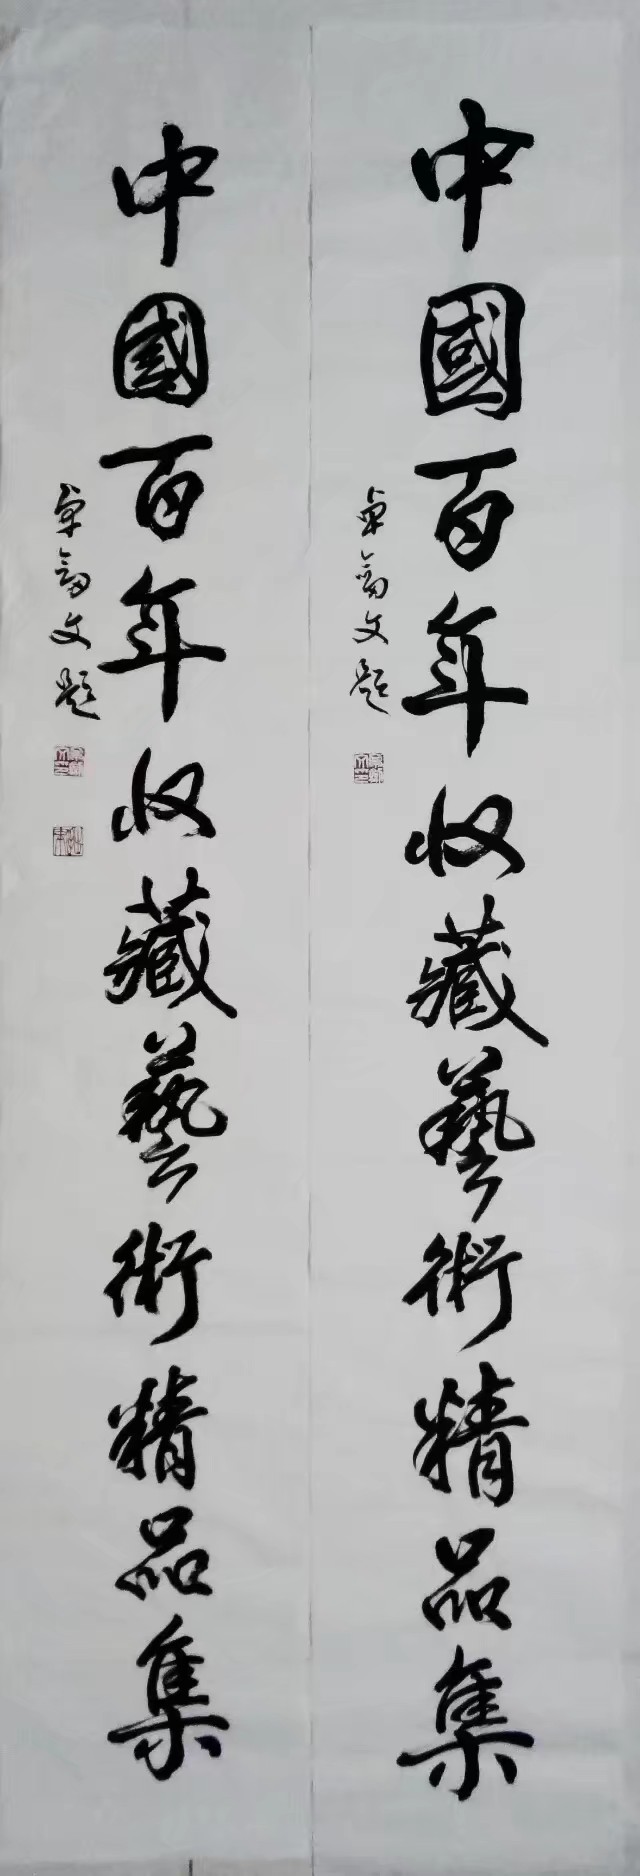 中國百年收藏藝術精品集
卓文題
中國百年收藏藝術精品集
卓文題